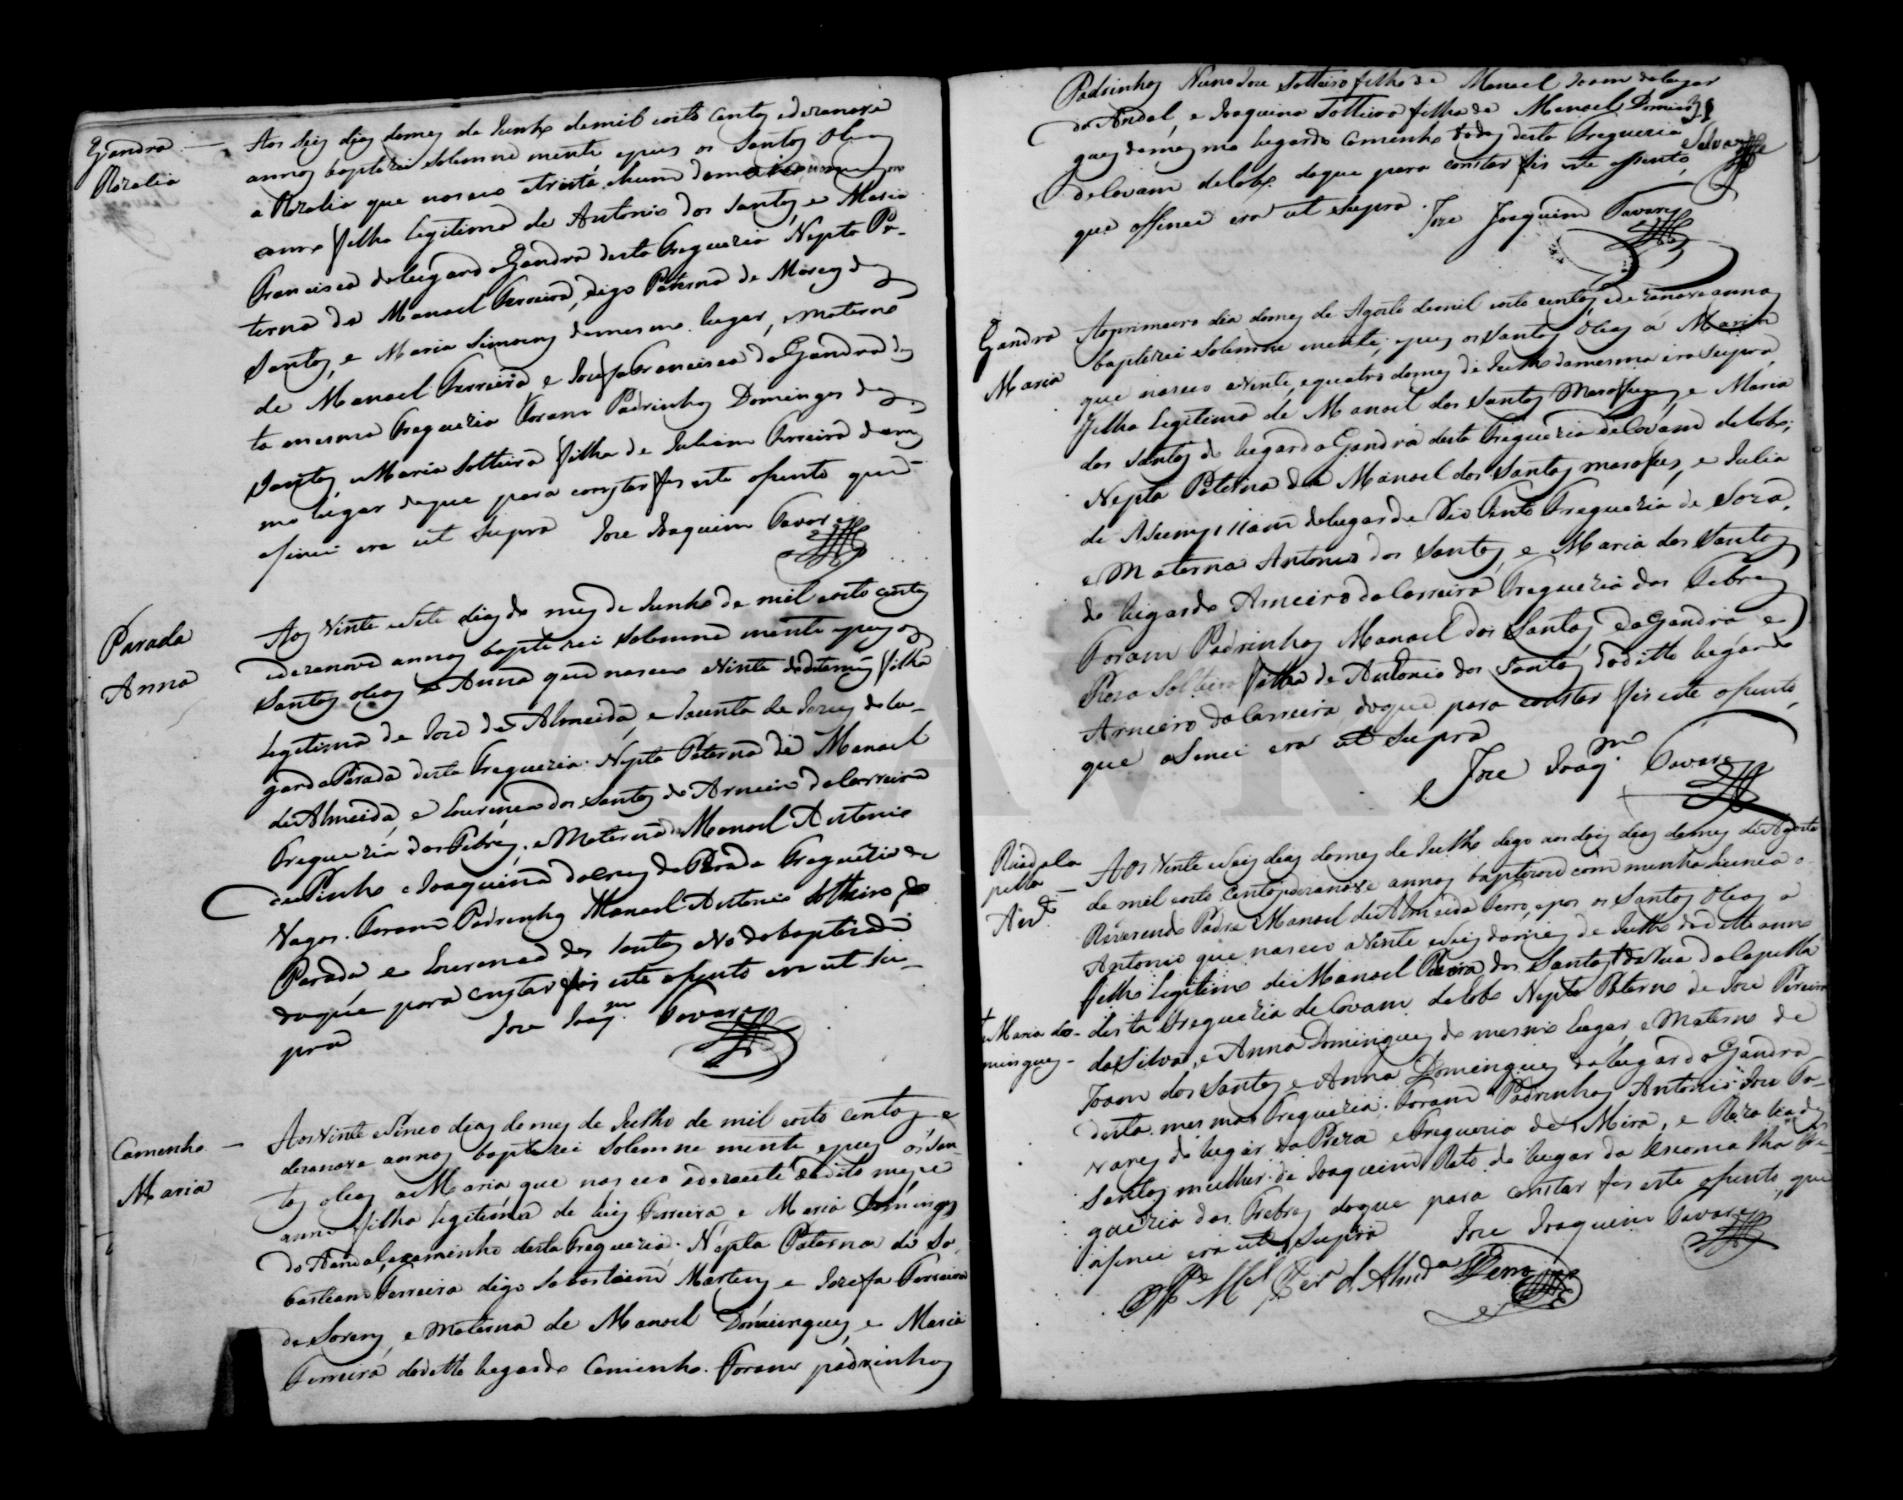 Gandra
Rozalia
Aos seis dias do mes de Junho de mil oito centos e dezanove
annos baptizei solemne mente e puz os Santos Oleos
a Rozalia que nasceo a trinta e hum de maio do mesmo
anno filha legitima de Antonio dos Santos e Maria
Francisca do lugar da Gandra desta Freguezia Nepta Pa-
terna de Manoel Ferreira, digo Paterna de Mores dos
Santos, e Maria Simoens do mesmo lugar, e materna
de Manoel Ferreira e Josefa Francisca da Gandra des
ta mesma Freguezia Foram Padrinhos Domingos dos
Santos, e Maria Solteira filha de Juliam Ferreira do mes
mo lugar de que para constar fis este assento que
asinei era ut supra Joze Joaquim Tavares
Parada
Anna
Aos vinte e sete dias do mes de Junho de mil oito centos
e dezanove annos baptizei solemne mente e puz os
Santos oleos a Anna que nasceo a vinte do dito mes filha
legitima de José de Almeida, e Jacinta de Jezus do lu-
gar da Parada desta Freguezia. Nepta Paterna de Manoel
de Almeida, e Lourença dos Santos do Arneiro da Carreira
Freguezia das Febres, e Materna de Manoel Antonio
de Pinho e Joaquina da Cruz da Parada Freguezia de
Vagos. Foram Padrinhos Manoel Antonio solteiro da
Parada, e Lourença dos Santos Avó da baptizada
do que para constar fis este assento era ut su-
pra Joze Joaqm. Tavares
Camenho
Maria
Aos vinte e sinco dias do mes de Julho de mil oito centos e
dezanove annos baptizei solemne mente e puz os San-
tos oleos a Maria que nasceo a dezasete do dito mes e
anno filha legitima de Luis Ferreira e Maria Domingues
do Andal, e caminho desta Freguezia. Nepta Paterna de Se-
bastiam Ferreira digo Sabastiam Martins e Josefa Ferreira
de Sorens, e Materna de Manoel Domingues, e Maria
Ferreira do ditto lugar do Camenho. Foram padrinhos
Padrinhos Nuno Joze Solteiro filho de Manoel Joam do lugar
do Andal, e Joaquina Solteira filha de Manoel Domin
gues do mesmo lugar do Camenho todos desta Freguezia
de Covam do Lobo, do que para constar fis este assento,
que assinei era ut supra. Joze Joaquim Tavares
Gandra
Maria
Ao primeiro dia do mes de Agosto de mil oito centos e dezanove annos
baptizei solemne mente, e puz os Santos Oleos a Maria
que nasceo a vinte e quatro do mes de Julho da mesma era supra,
filha legitima de Manoel dos Santos Marques, e Maria
dos Santos do lugar da Gandra desta Freguezia de Covam do Lobo;
Nepta Paterna de Manoel dos Santos Marques, e Julia
de Asumpssam do lugar de Rio Tinto Freguezia de Soza,
e Materna Antonio dos Santos, e Maria dos Santos
do lugar do Arneiro da Carreira Freguezia das Febres
Foram Padrinhos Manoel dos Santos da Gandra e
Roza Solteira filha de Antonio dos Santos do ditto lugar do
Arneiro da Carreira do que para constar fis este assento,
que asinei era ut supra
Joze Joaqm. Tavares
Rua da Ca
pella
Anto.
Aos vinte e seis dias do mes de Julho digo aos dois dias do mes de Agosto
de mil oito centos e dezanove annos baptizou com minha licença o
Reverendo Padre Manoel de Almeida Ferro, e pos os Santos Oleos a
Antonio que nasceo a vinte e seis do mes de Julho do ditto anno
filho legitimo de Manoel Pereira dos Santos + da Rua da Capella
+ e Maria do-
mingues -
desta Freguezia de Covam do Lobo Nepto Paterno de Joze Pereira
da Silva, e Anna Domingues do mesmo lugar, e Materno de
Joam dos Santos e Anna Domingues do lugar da Gandra
desta mesma Freguezia: Foram Padrinhos Antonio Joze Ta-
vares do lugar da Preza e Freguezia de Mira, e Rozalia dos
Santos mulher de Joaquim Rato do lugar da Fre-
guezia das Febres do que para constar fis este assento, que
asinei era ut supra Joze Joaquim Tavares
Pe. Mel.